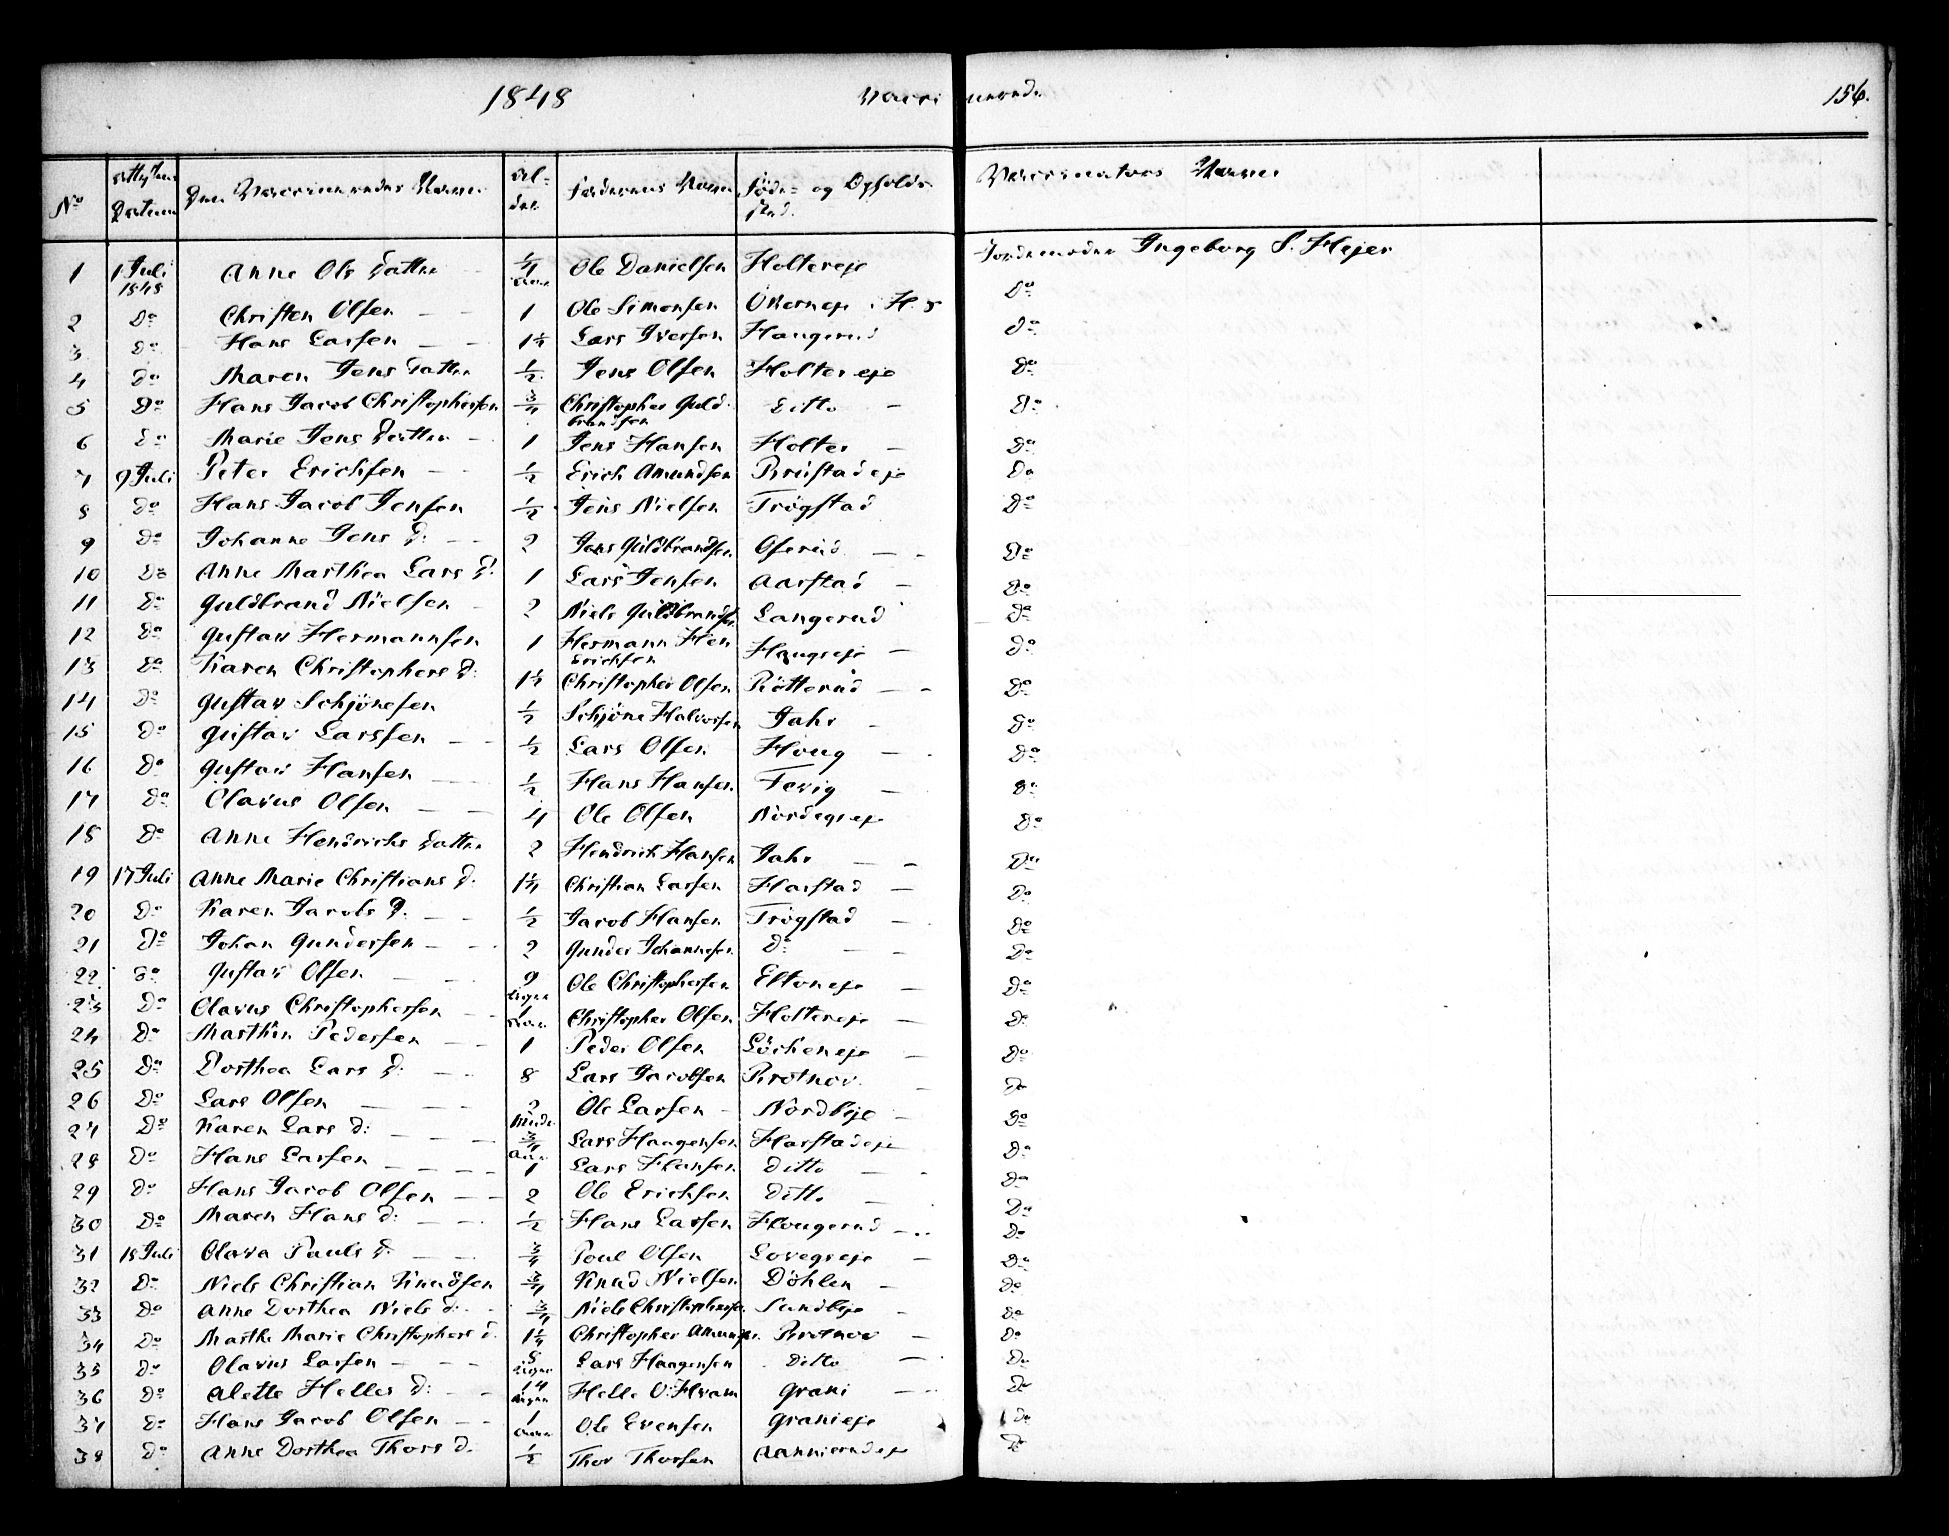 1848 Vaccinerede 156.
No Attestens Datum Den Vaccineredes Navn Alder Faderens Navn Føde- og Opholds- Vaccinateurs Navn
sted.
1 1 Juli 1848 Anne Ols Datter ¼ Aar Ole Danielsen Holtereje Jordemoder Ingeborg S. Hejer
2 Do Christen Olsen — 1 Ole Simensen Økerneje i H. s Do
3 Do Hans Larsen — 1½ Lars Iversen Haugerud Do
4 Do Maren Jens Datter ½ Jens Olsen Holtereje Do
5 Do Hans Jacob Christophersen ¾ Christopher Guldbrandsen Ditto — Do
6 Do Marie Jens Datter — 1 Jens Hansen Holter — Do
7 9 Juli Peter Erichsen — ½ Erich Amundsen Brustadeje Do
8 Do Hans Jacob Jensen ½ Jens Nielsen Trøgstad Do
9 Do Johanne Jens D: — 2 Jens Guldbrandsen Oserud — Do
10 Do Anne Marthea Lars D. 1 Lars Jensen Aarstad — Do
11 Do Guldbrand Nielsen — 2 Niels Guldbrandsen Langerud Do
12 Do Gustav Hermannsen 1 Hermann Hen Erichsen Haugseje — Do
13 Do Karen Christophers D: 1½ Christopher Olsen Røtterud — Do
14 Do Gustav Schjønesen ½ Schjøne Halvorsen Jahr — Do
15 Do Gustav Larssen — ½ Lars Olsen Houg — Do
16 Do Gustav Hansen — ½ Hans Hansen Tevig — Do
17 Do Olavus Olsen — 4 Ole Olsen Nordegseje Do
18 Do Anne Hendrichs Datter 2 Hendrich Hansen Jahr — Do
19 17 Juli Anne Marie Christians D. 1¼ Christian Larsen Harstad — Do
20 Do Karen Jacobs D. — ½ Jacob Hansen Trøgstad — Do
21 Do Johan Gundersen — 2 Gunder Johannesen Do — Do
22 Do Gustav Olsen — 9 Uger Ole Christophersen Eltoneje — Do
23 Do Olavus Christophersen — 1 Aar Christopher Olsen Holtereje — Do
24 Do Marthin Pedersen — 1 Peder Olsen Lørkeneje — Do
25 Do Dorthea Lars D. — 8 Lars Jacobsen Brotnov — Do
26 Do Lars Olsen — Ole Larsen — Nordbyeje — Do
27 Do Karen Lars D: — ¾ Aar Lars Haagensen Harstadeje Do
28 Do Hans Larsen — 1 Lars Hansen Ditto — Do
29 Do Hans Jacob Olsen — 2 Ole Erichsen Ditto — Do
30 Do Maren Hans D: — ½ Hans Larsen Hougerud — Do
31 18 Juli Olava Pauls D. — ¾ Poul Olsen Lovegseje — Do
32 Do Niels Christian Knudsen ¾ Knud Nielsen Døhlen — Do
33 Do Anne Dorthea Niels D: ¾ Niels Christophersen Sandbyeje — Do
34 Do Marthe Marie Christophers D. 1¼ Christopher Amunds. Brotnov — Do
35 Do Olavus Larsen — 5 Uger Lars Haagensen Ditto — Do
36 Do Alette Helles D: — 14 Uger Helle O: Hvam Grani — Do
37 Do Hans Jacob Olsen — 1 Aar Ole Evensen Granieje Do
38 Do Anne Dorthea Thors D. ½ Thor Thorsen Aannerudeje Do